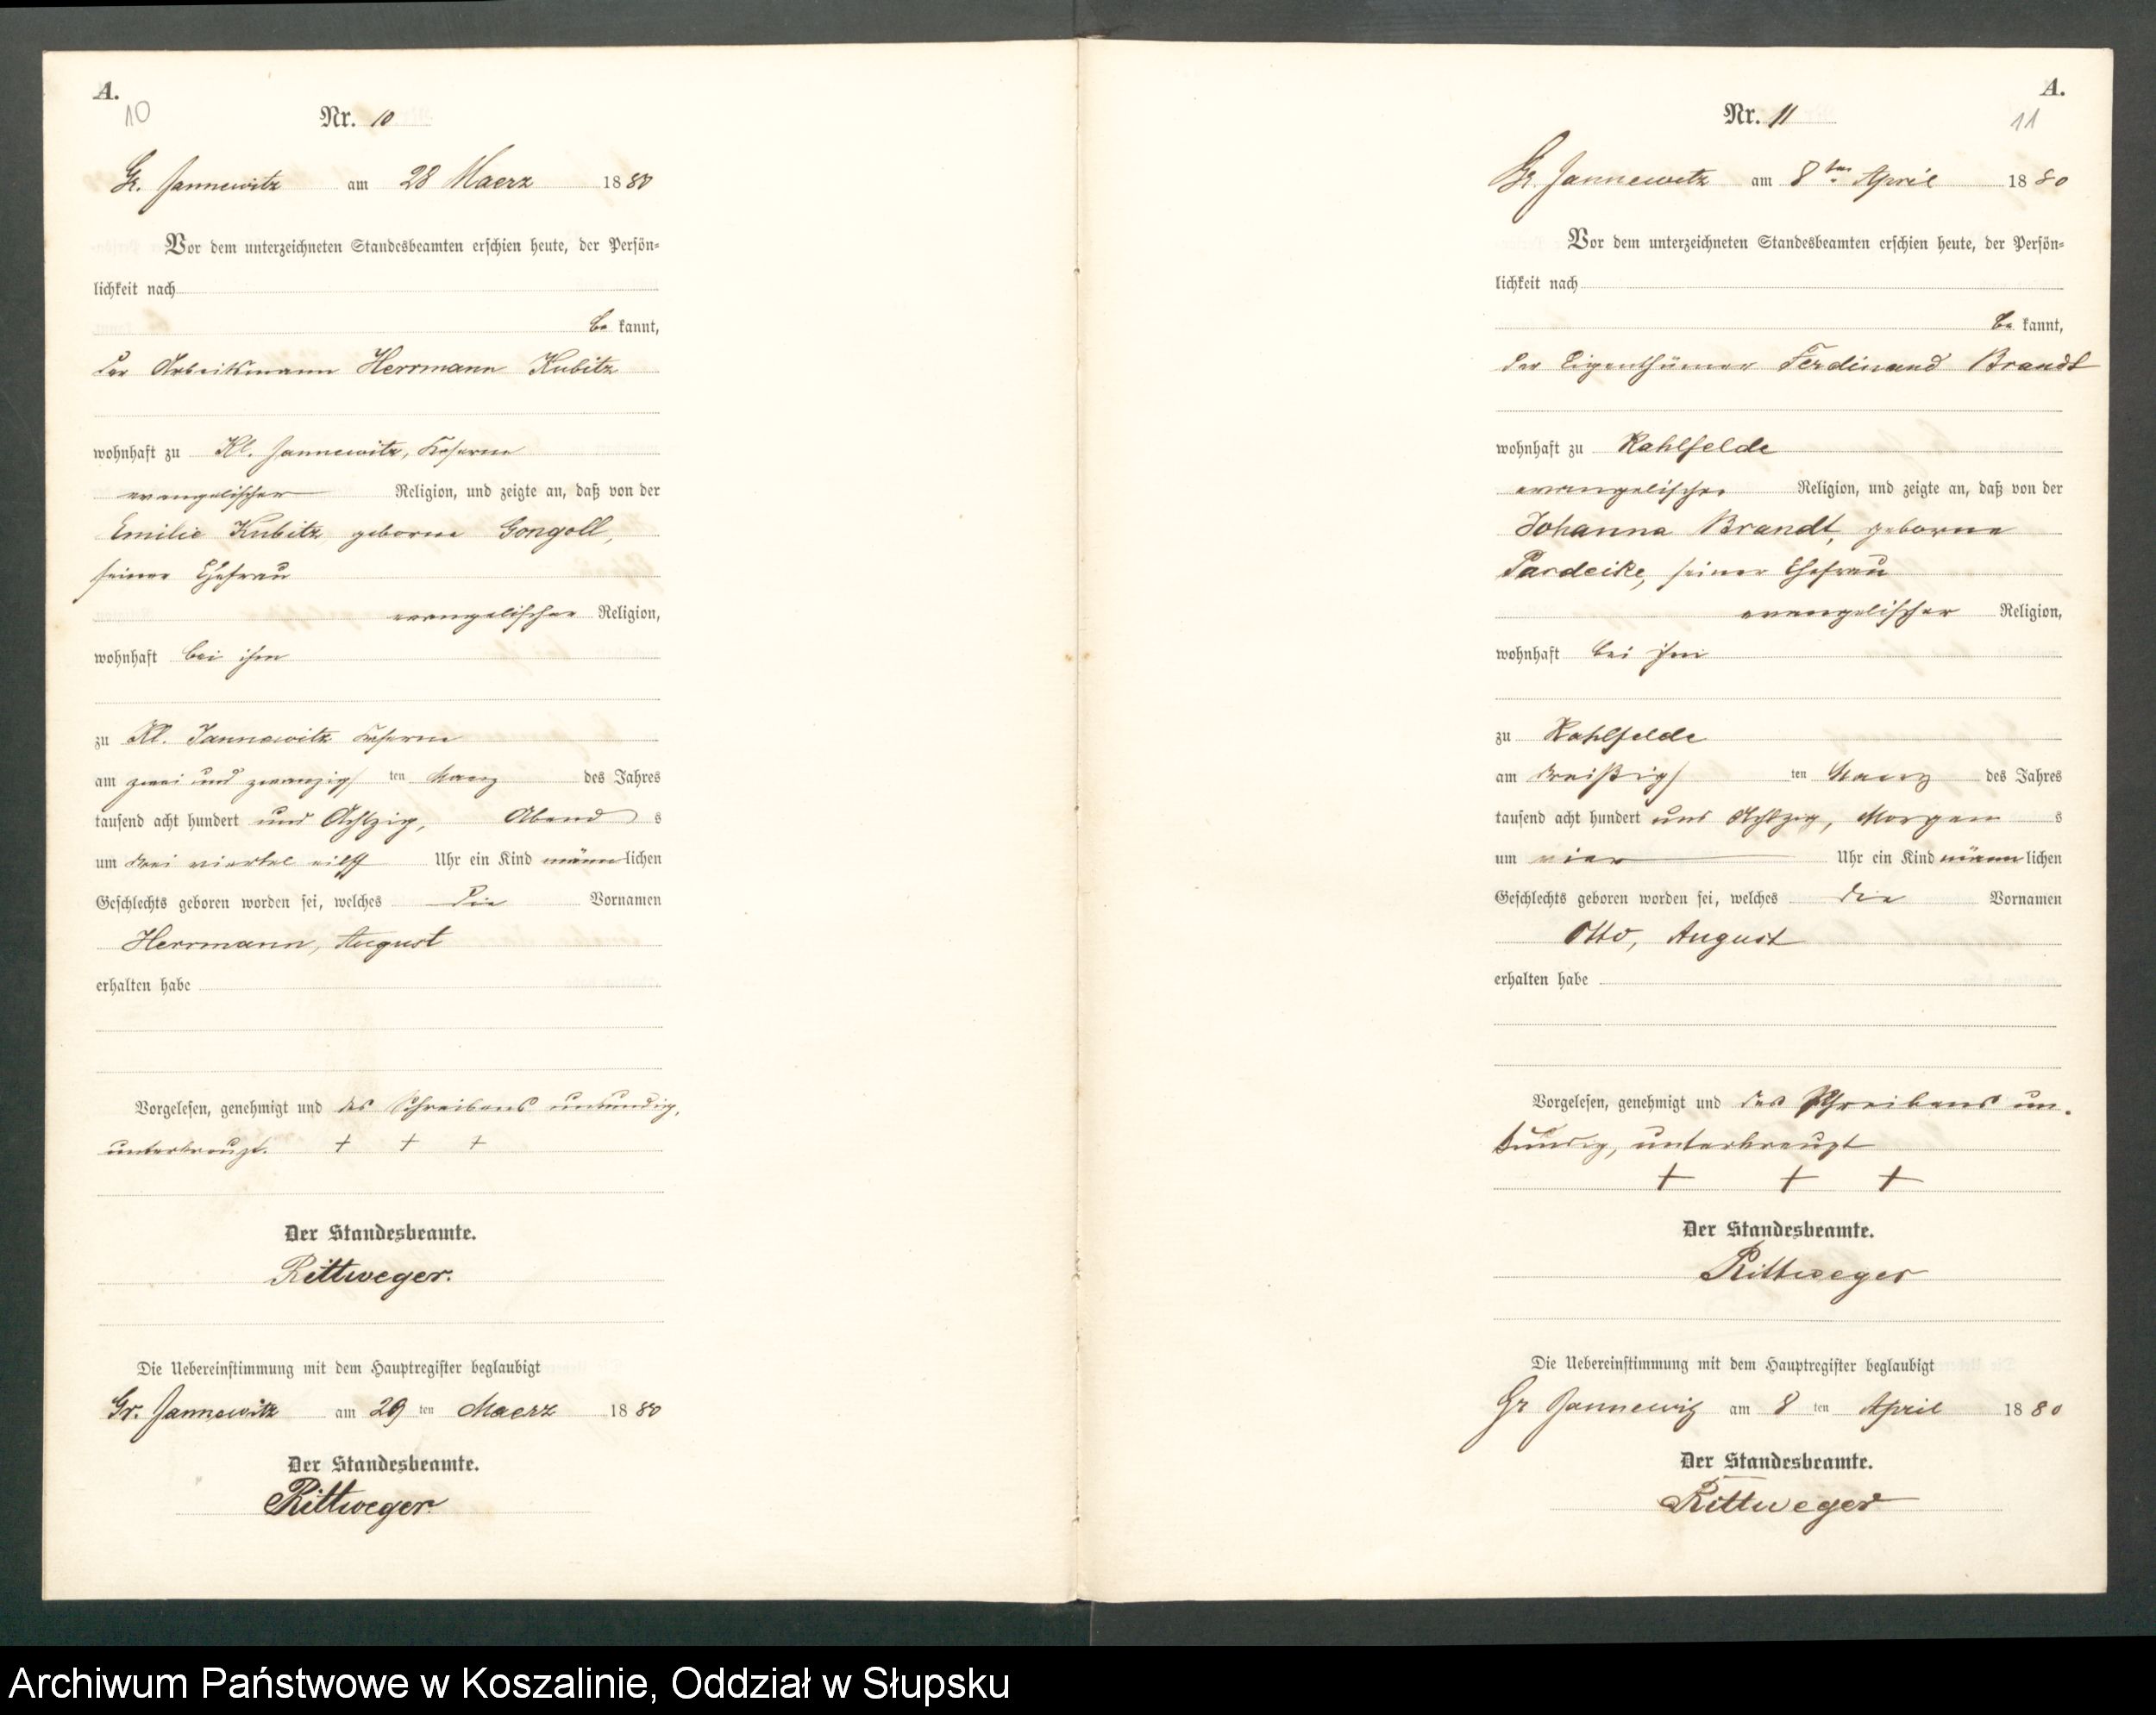 A.
10
Nr. 10
Gr. Jannewitz am 28 Maerz 1880
Vor dem unterzeichneten Standesbeamten erschien heute, der Persön-
lichkeit nach
be kannt,
der Arbeitsmann Herrmann Kubitz
wohnhaft zu Kl. Jannewitz,
evangelischer Religion, und zeigte an, daß von der
Emilie Kubitz, geborne Gongoll,
seiner Ehefrau
evangelischer Religion,
wohnhaft bei ihm
zu Kl. Jannewitz
am zwei und zwanzigs ten Maerz des Jahres
tausend acht hundert und Achtzig, Abend s
um drei viertel eilf Uhr ein Kind männlichen
Geschlechts geboren worden sei, welches die Vornamen
Herrmann, August
erhalten habe
Vorgelesen, genehmigt und des Schreibens unkundig,
unterkreuzt. + + +
Der Standesbeamte.
Rittweger.
Die Uebereinstimmung mit dem Hauptregister beglaubigt
Gr. Jannewitz am 29 ten Maerz 1880
Der Standesbeamte.
Rittweger.
A.
11
Nr. 11
Gr. Jannewitz am 8ten April 1880
Vor dem unterzeichneten Standesbeamten erschien heute, der Persön-
lichkeit nach
be kannt,
der Eigenthümer Ferdinand Brandt
wohnhaft zu Kahlfelde
evangelischer Religion, und zeigte an, daß von der
Johanna Brandt, geborne
Pardeike, seiner Ehefrau
evangelischer Religion,
wohnhaft bei ihm
zu Kahlfelde
am dreißigs ten Maerz des Jahres
tausend acht hundert und Achtzig, Morgen s
um vier Uhr ein Kind männlichen
Geschlechts geboren worden sei, welches die Vornamen
Otto, August
erhalten habe
Vorgelesen, genehmigt und des Schreibens un-
kundig, unterkreuzt
+ + +
Der Standesbeamte.
Rittweger
Die Uebereinstimmung mit dem Hauptregister beglaubigt
Gr Jannewitz am 8 ten April 1880
Der Standesbeamte.
Rittweger
Archiwum Państwowe w Koszalinie, Oddział w Słupsku